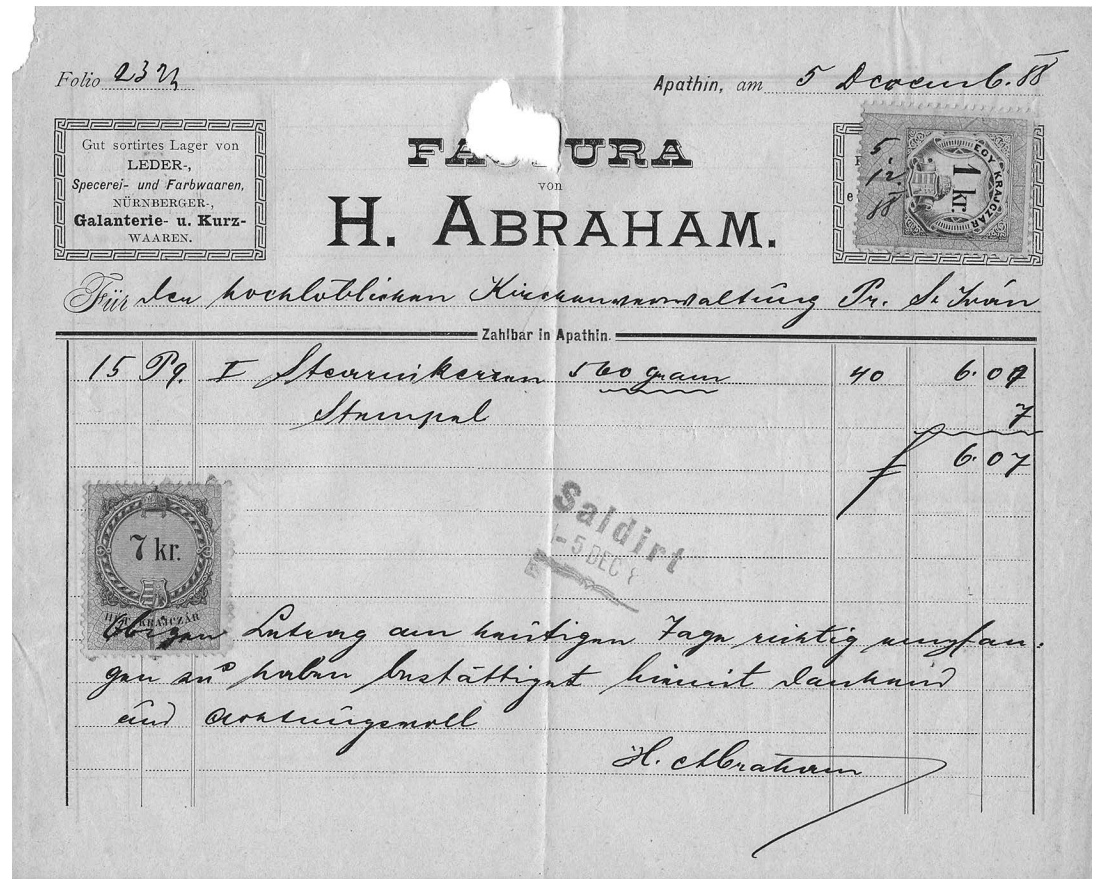 Folio 237
Apathin, am 5 Decemb. 88
Gut sortirtes Lager von
LEDER-,
Specerei- und Farbwaaren,
NÜRNBERGER-,
Galanterie- u. Kurz-
WAAREN.
FA URA
von
H. ABRAHAM.
5
12
88
EGY KRAJCZÁR
1 kr.
Für den hochlöblichen Kirchenverwaltung Pr. St Iván
Zahlbar in Apathin.
15 Pq. I Stearinkerzen 560 gram 40 6.00
Stempel 7
f 6.07
7 kr.
HÉT KRAJCZÁR
Saldirt
-5 DEC 8
Obigen Betrag am heutigen Tage richtig empfan-
gen zu haben bestättiget hiemit dankend
und Achtungsvoll
H. Abraham